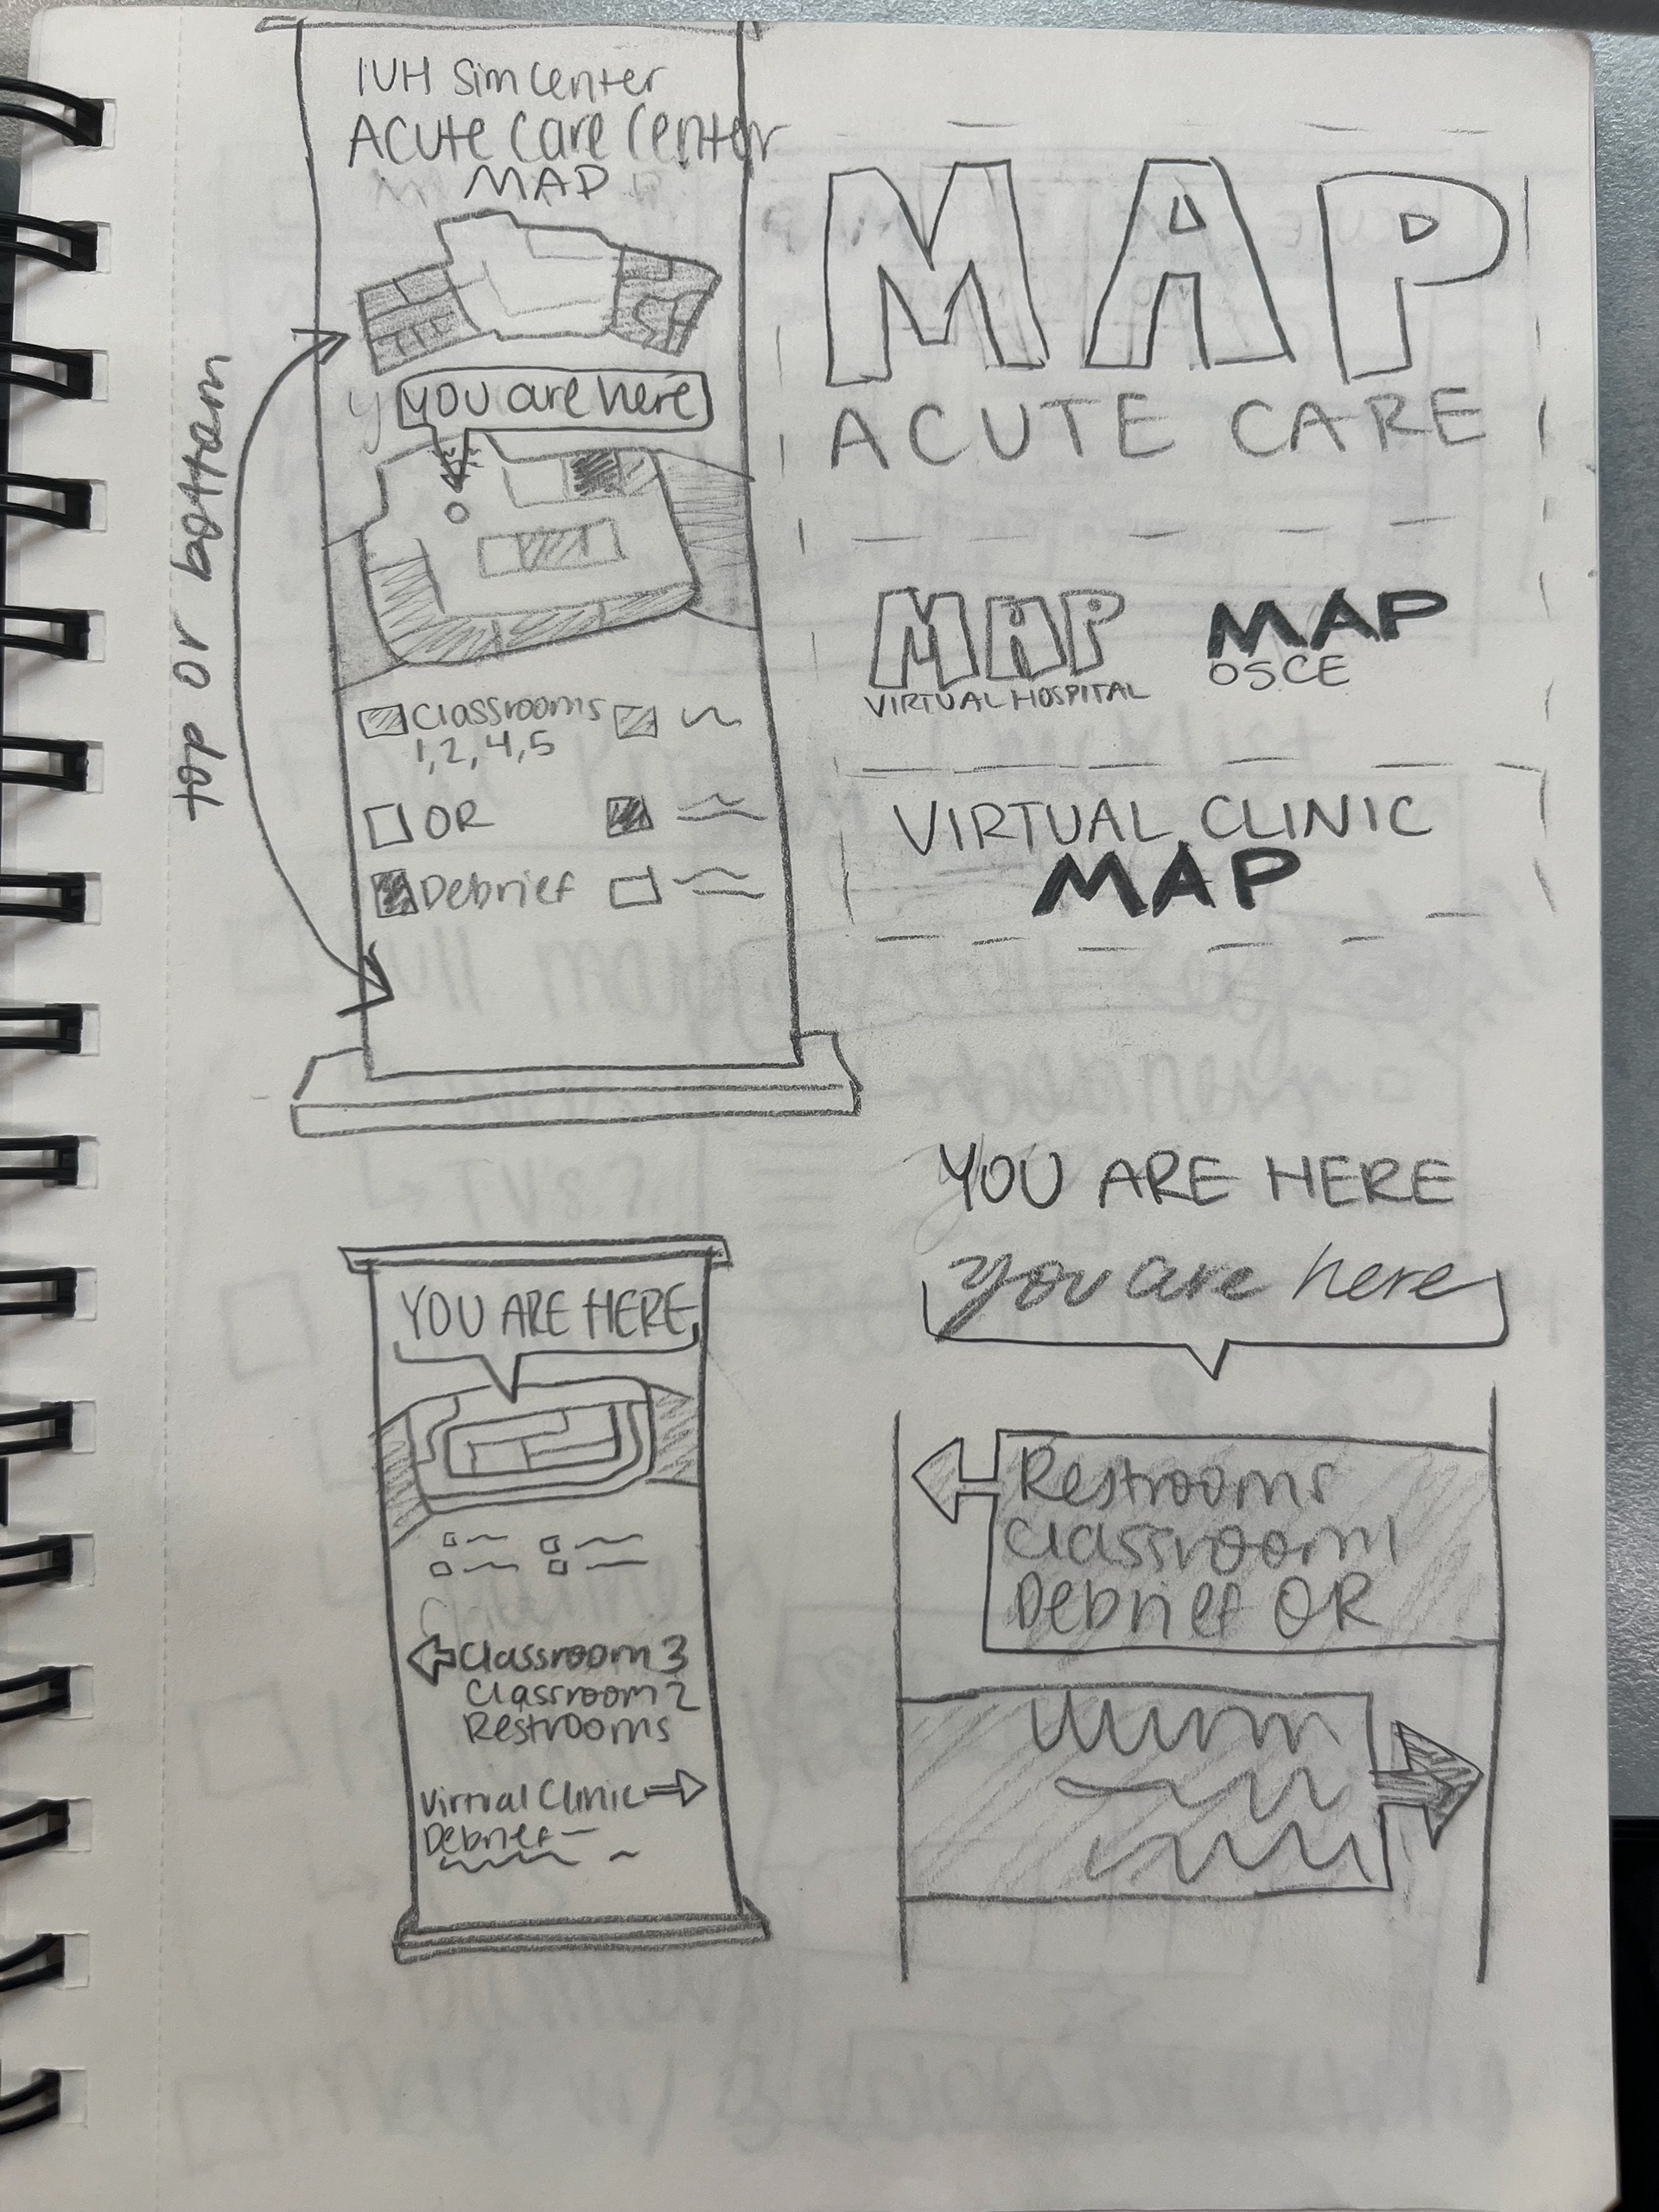 IVH Sim Center
Acute Care Center
MAP
you are here
top or bottom
Classrooms
1, 2, 4, 5
OR
Debrief
MAP
ACUTE CARE
MAP
VIRTUAL HOSPITAL
MAP
OSCE
VIRTUAL CLINIC
MAP
YOU ARE HERE
you are here
YOU ARE HERE
Classroom 3
Classroom 2
Restrooms
Virtual Clinic
Debrief
Restrooms
Classroom 1
Debrief OR